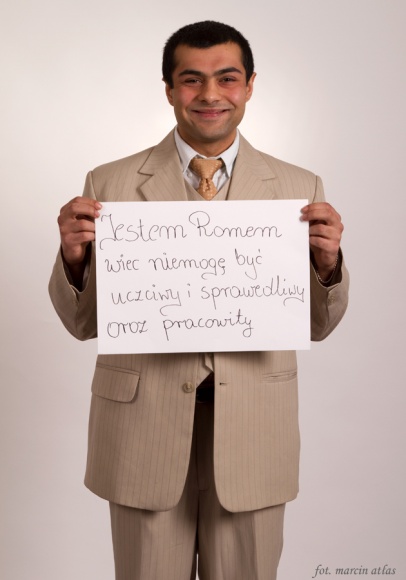 Jestem Romem
więc niemogę być
uczciwy i sprawedliwy
oraz pracowity
fot. marcin atlas